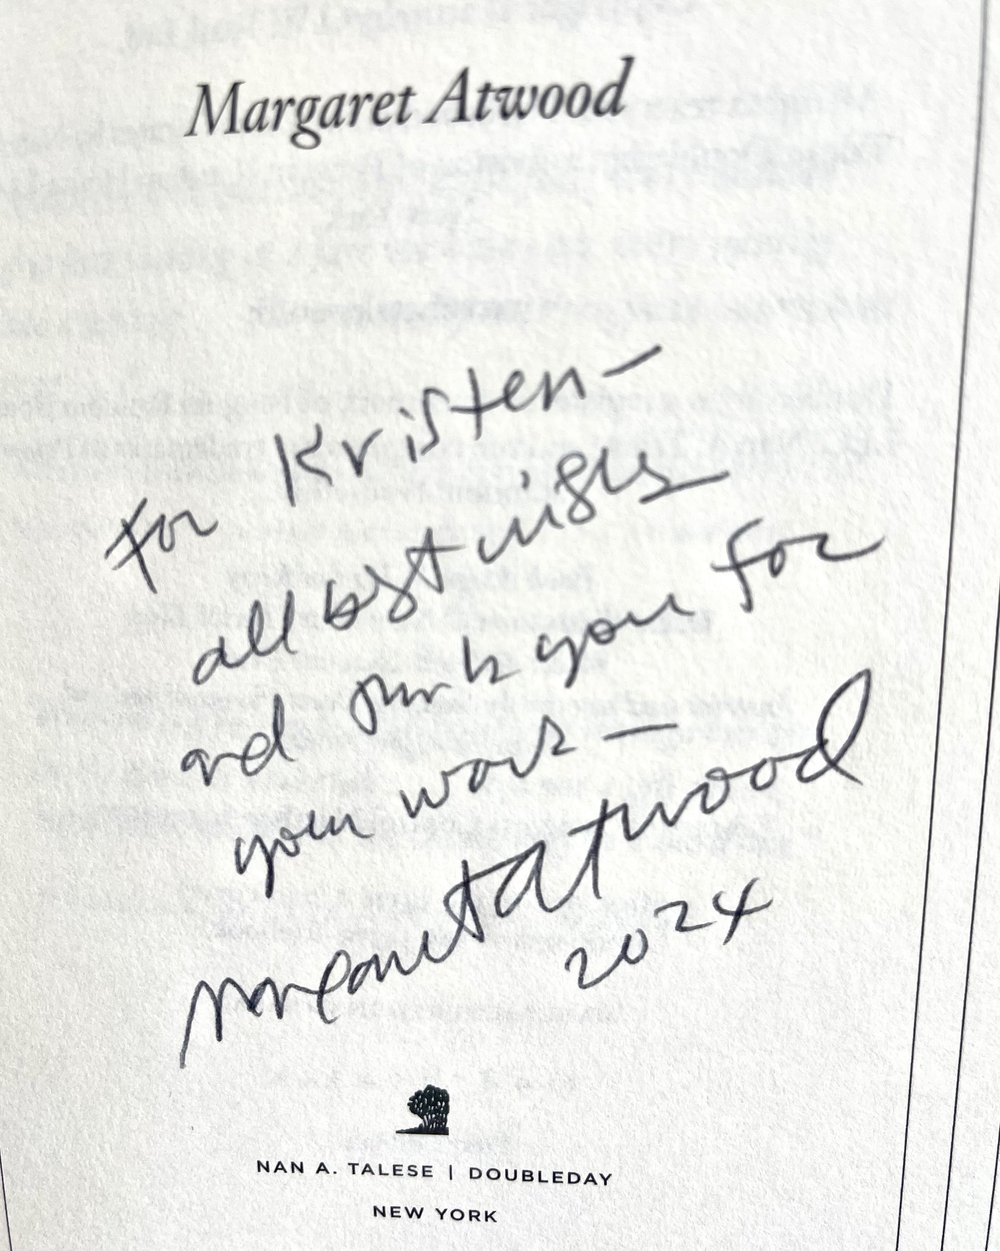 Margaret Atwood
For Kristen—
all best wishes
and thank you for
your work—
Margaret Atwood
2024
NAN A. TALESE | DOUBLEDAY
NEW YORK